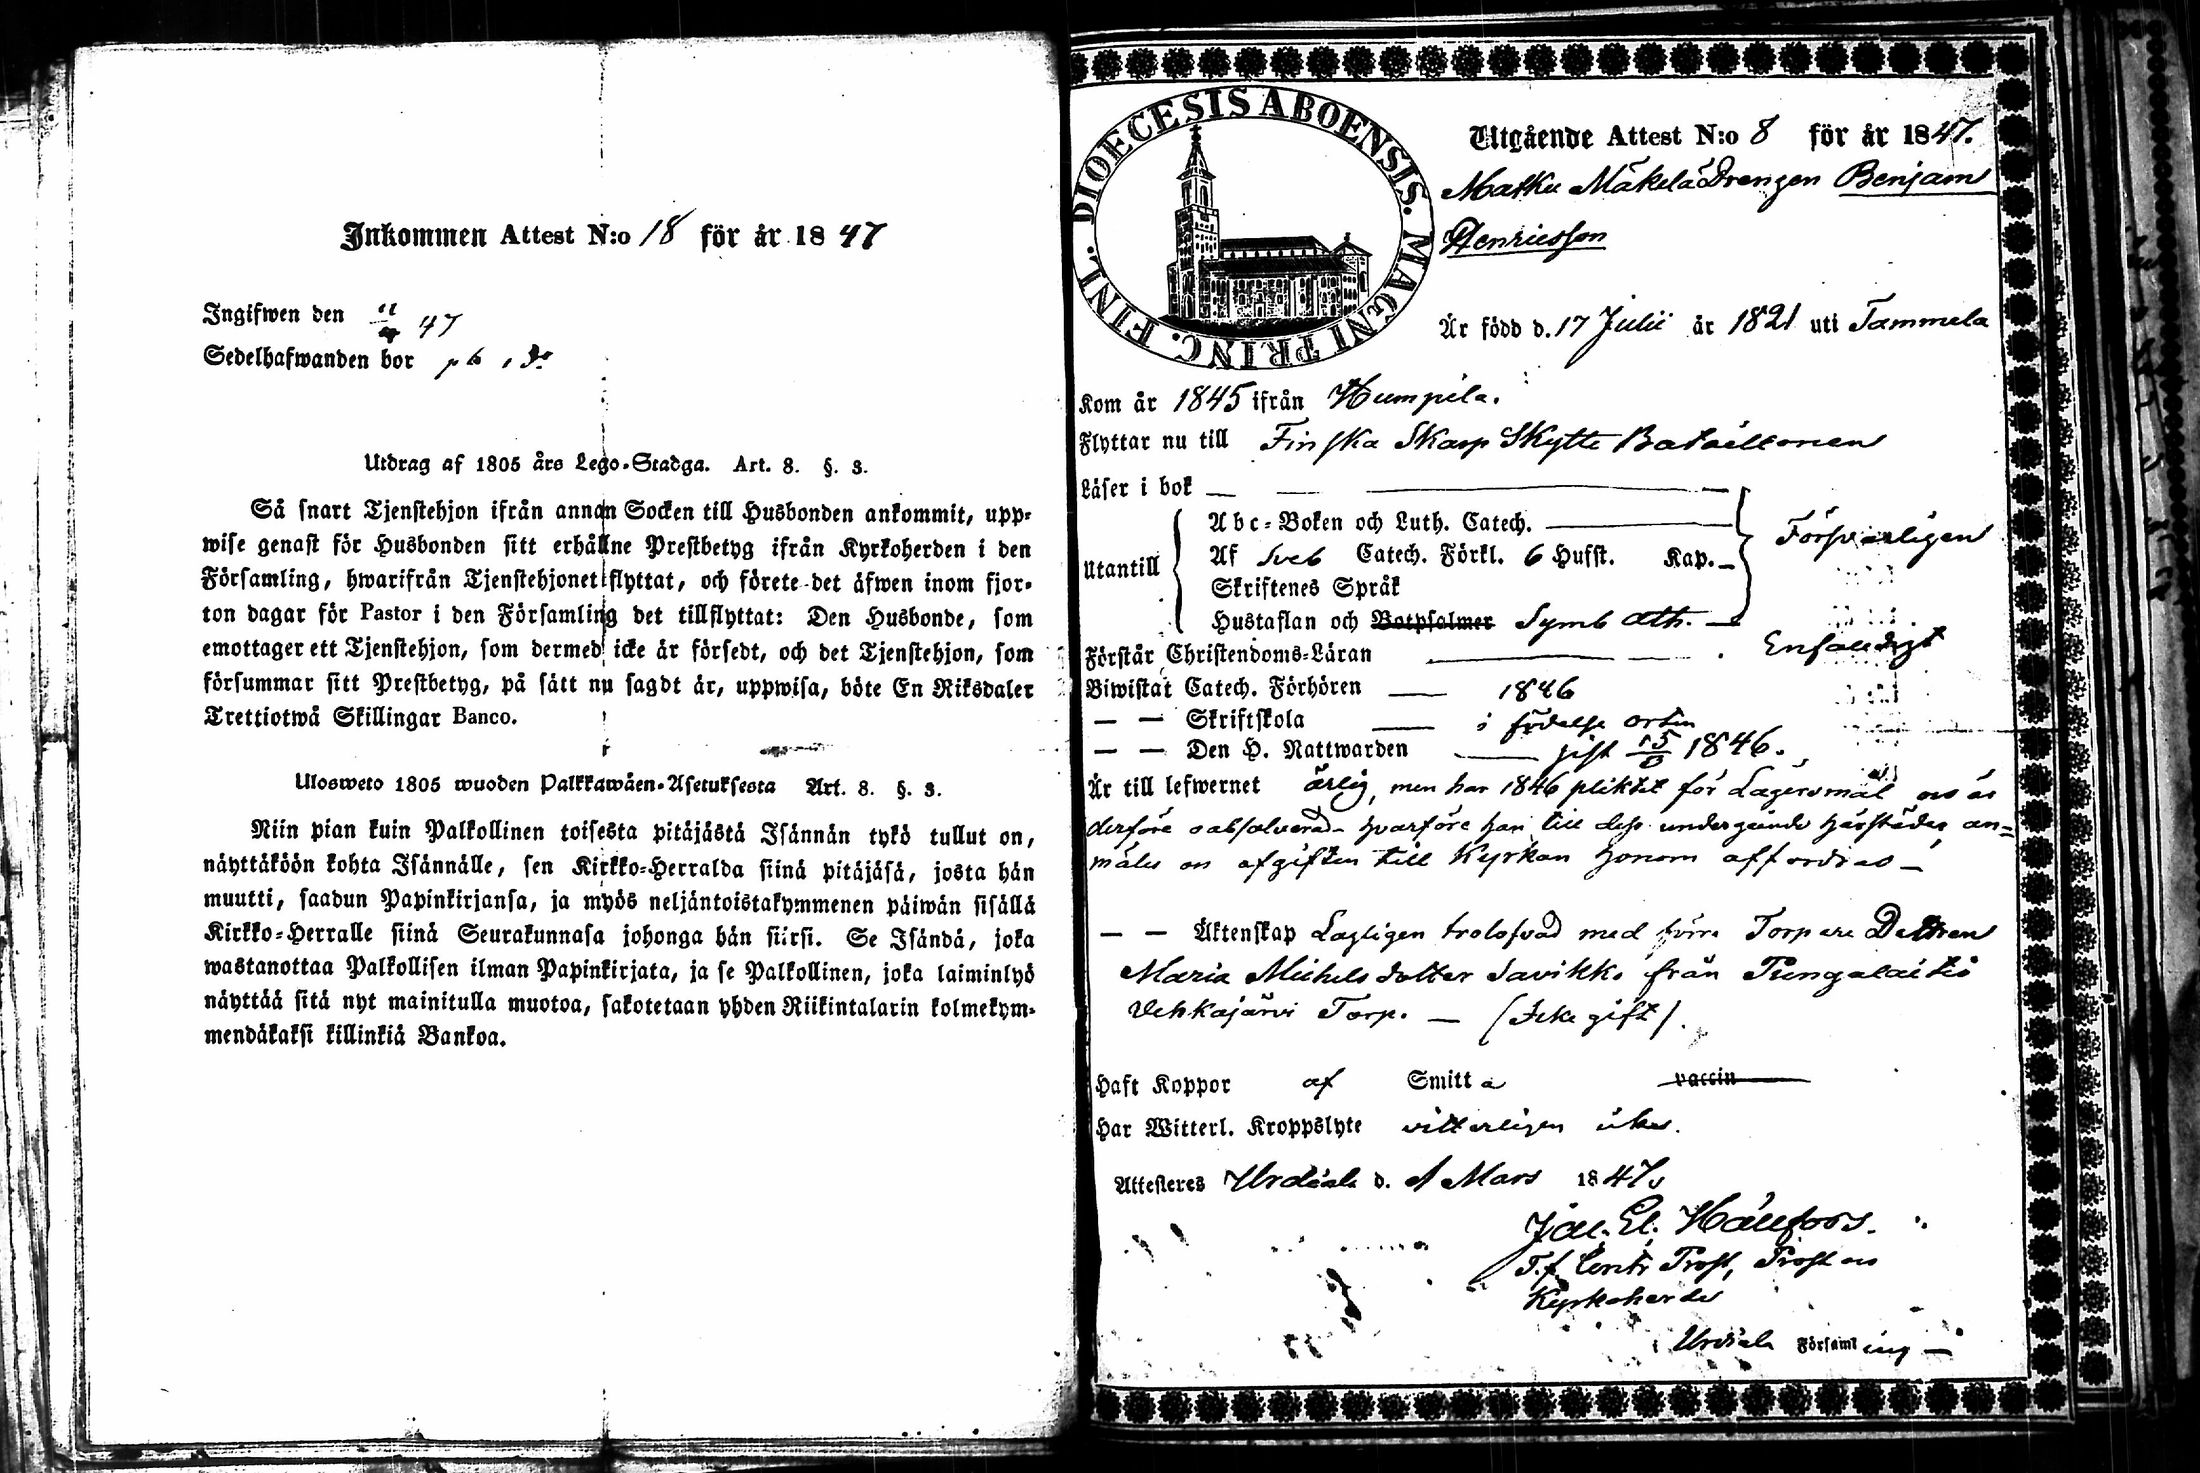 Inkommen Attest N:o 18 för år 1847
Ingifwen den 47
Sedelhafwanden bor
Utdrag af 1805 års Lego-Stadga. Art. 8. §. 3.
Så snart Tjenstehjon ifrån annan Socken till Husbonden ankommit, upp-
wise genast för Husbonden sitt erhållne Prestbetyg ifrån Kyrkoherden i den
Församling, hwarifrån Tjenstehjonet flyttat, och förete det äfwen inom fjor-
ton dagar för Pastor i den Församling det tillflyttat: Den Husbonde, som
emottager ett Tjenstehjon, som dermed icke är försedt, och det Tjenstehjon, som
försummar sitt Prestbetyg, på sätt nu sagdt är, uppwisa, böte En Riksdaler
Trettiotwå Skillingar Banco.
Ulosweto 1805 wuoden Palkkawäen-Asetuksesta Art. 8. §. 3.
Niin pian kuin Palkollinen toisesta pitäjästä Isännän tykö tullut on,
näyttäköön kohta Isännälle, sen Kirkko-Herralda siinä pitäjäsä, josta hän
muutti, saadun Papinkirjansa, ja myös neljäntoistakymmenen päiwän sisällä
Kirkko-Herralle siinä Seurakunnasa johonga hän siirsi. Se Isändä, joka
wastanottaa Palkollisen ilman Papinkirjata, ja se Palkollinen, joka laiminlyö
näyttää sitä nyt mainitulla muotoa, sakotetaan yhden Riikintalarin kolmekym-
mendäkaksi killinkiä Bankoa.
DIOECESIS ABOENSIS. MAGNI PRINC. FINL.
Utgående Attest N:o 8 för år 1847.
Matku Mäkelä Drengen Benjam
Henricsson
Är född d. 17 Julii år 1821 uti Tammela
Kom år 1845 ifrån Humpila.
Flyttar nu till Finska Skarp Skytte Bataillonen
Läser i bok
Abc-Boken och Luth. Catech. Försvarligen
Utantill Af Sveb Catech. Förkl. 6 Hufst. Kap.
Skriftenes Språk
Hustaflan och Botpsalmer Symb Ath.
Förstår Christendoms-Läran Enfaldigt
Biwistat Catech. Förhören 1846
— — Skriftskola i födelse orten
— — Den H. Nattwarden sist 1846.
Är till lefwernet ärlig, men har 1846 pliktat för Lägersmål
derföre oabsolverad hvarföre han till dess undergående härstädes an=
mäles afgiften till Kyrkan honom affordras —
— — Äktenskap Lagligen trolofvad med förre Torpare Dottren
Maria Michels dotter Savikko från
Vehkajärvi Torp. — (Icke gift).
Haft Koppor af Smitta vaccin
Har Witterl. Kroppslyte vitterligen
Attesteres Urdiala d. 1 Mars 1847
Hällfors.
T.f. Contr Prost, Prost
Kyrkoherde
i Urdiala Församling —